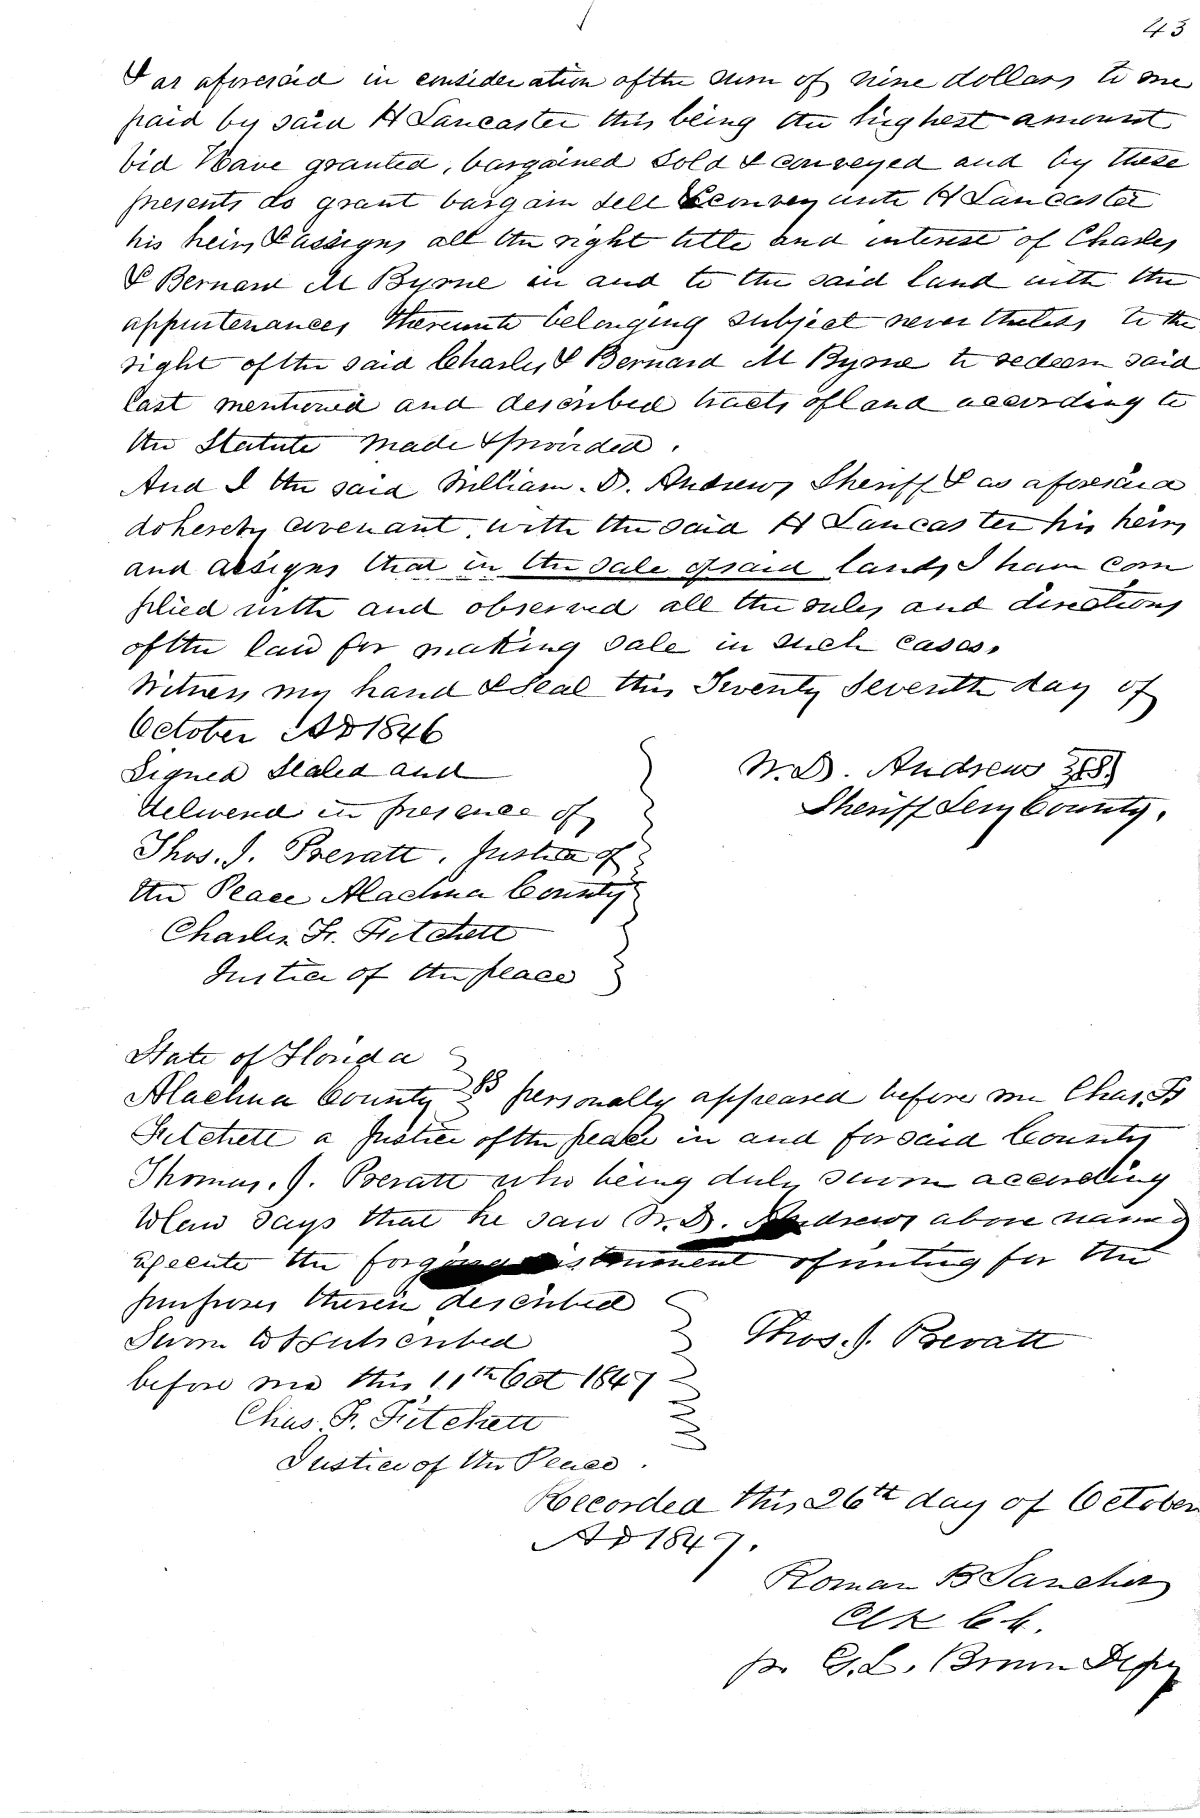 43
& as aforesaid in consideration of the sum of nine dollars to me
paid by said H Lancaster this being the highest amount
bid Have granted, bargained sold & conveyed and by these
presents do grant bargain sell & convey unto H Lancaster
his heirs & assigns all the right title and interest of Charles
& Bernard M Byrne in and to the said land with the
appurtenances thereunto belonging subject never theless to the
right of the said Charles & Bernard M Byrne to redeem said
last mentioned and described tracts of land according to
the Statute made & provided.
And I the said William. D. Andrews Sheriff & as aforesaid
do hereby covenant with the said H Lancaster his heirs
and assigns that in the sale of said lands I have com
plied with and observed all the rules and directions
of the law for making sale in such cases.
Witness my hand & Seal this Twenty Seventh day of
October AD 1846
Signed Sealed and
W. D. Andrews
delivered in presence of
Sheriff Levy County.
Thos. J. Prevatt. Justice of
the Peace Alachua County
Charles F. Fitchett
Justice of the peace
State of Florida
Alachua County SS personally appeared before me Chas. F
Fitchett a Justice of the peace in and for said County
Thomas. J. Prevatt who being duly sworn according
to law says that he saw W. D. Andrews above named
execute the forgoing instrument of writing for the
purposes therein described
Sworn to & subscribed
Thos. J. Prevatt
before me this 11th Oct 1847
Chas. F. Fitchett
Justice of the Peace.
Recorded this 26th day of October
AD 1847.
Roman B Sanchez
Clk C C.
pr. G. L. Brown Depy